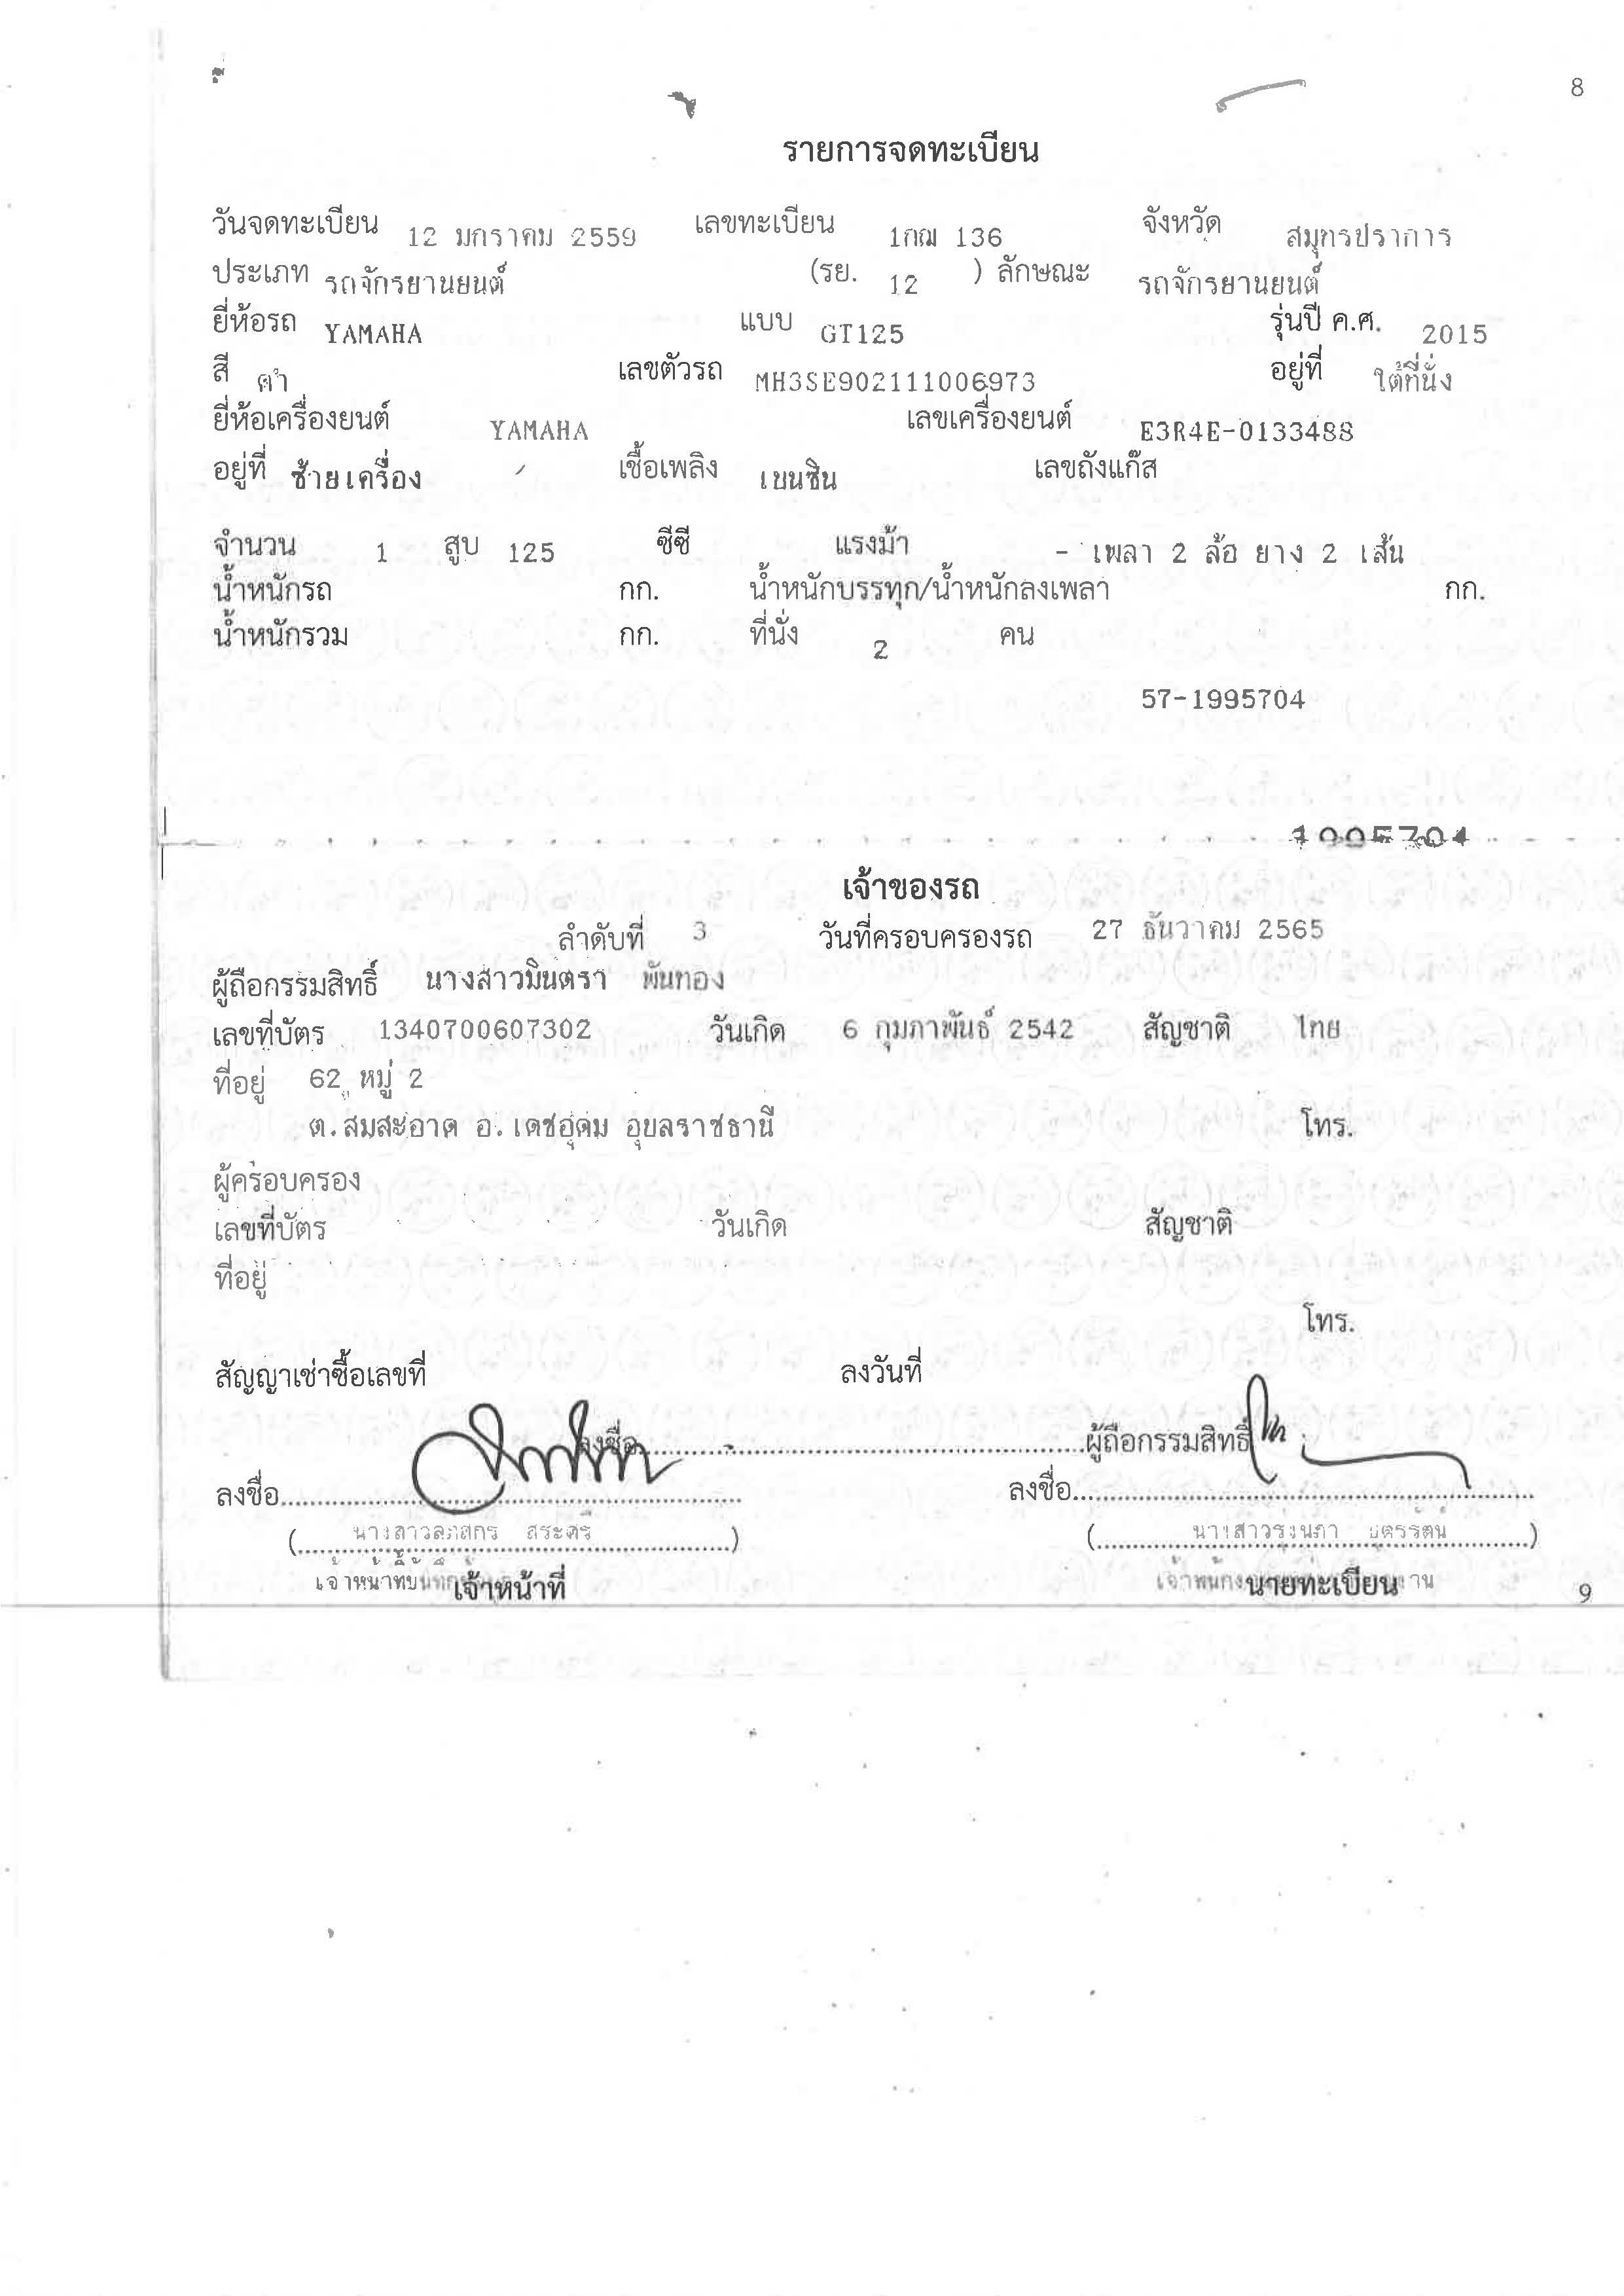 8
รายการจดทะเบียน
วันจดทะเบียน 12 มกราคม 2559 เลขทะเบียน 1กฌ 136 จังหวัด สมุทรปราการ
ประเภท รถจักรยานยนต์ (รย. 12 ) ลักษณะ รถจักรยานยนต์
ยี่ห้อรถ YAMAHA แบบ GT125 รุ่นปี ค.ศ. 2015
สี ดำ เลขตัวรถ MH3SE902111006973 อยู่ที่ ใต้ที่นั่ง
ยี่ห้อเครื่องยนต์ YAMAHA เลขเครื่องยนต์ E3R4E-0133488
อยู่ที่ ซ้ายเครื่อง เชื้อเพลิง เบนซิน เลขถังแก๊ส
จำนวน 1 สูบ 125 ซีซี แรงม้า - เพลา 2 ล้อ ยาง 2 เส้น
น้ำหนักรถ กก. น้ำหนักบรรทุก/น้ำหนักลงเพลา กก.
น้ำหนักรวม กก. ที่นั่ง 2 คน
57-1995704
1995704
เจ้าของรถ
ลำดับที่ 3 วันที่ครอบครองรถ 27 ธันวาคม 2565
ผู้ถือกรรมสิทธิ์ นางสาวมินตรา พันทอง
เลขที่บัตร 1340700607302 วันเกิด 6 กุมภาพันธ์ 2542 สัญชาติ ไทย
ที่อยู่ 62 หมู่ 2
ต.สมสะอาด อ.เดชอุดม อุบลราชธานี โทร.
ผู้ครอบครอง
เลขที่บัตร วันเกิด สัญชาติ
ที่อยู่
โทร.
สัญญาเช่าซื้อเลขที่ ลงวันที่
ลงชื่อ ผู้ถือกรรมสิทธิ์
ลงชื่อ ลงชื่อ
(นางสาว) (นางสาว)
เจ้าหน้าที่ นายทะเบียน
9